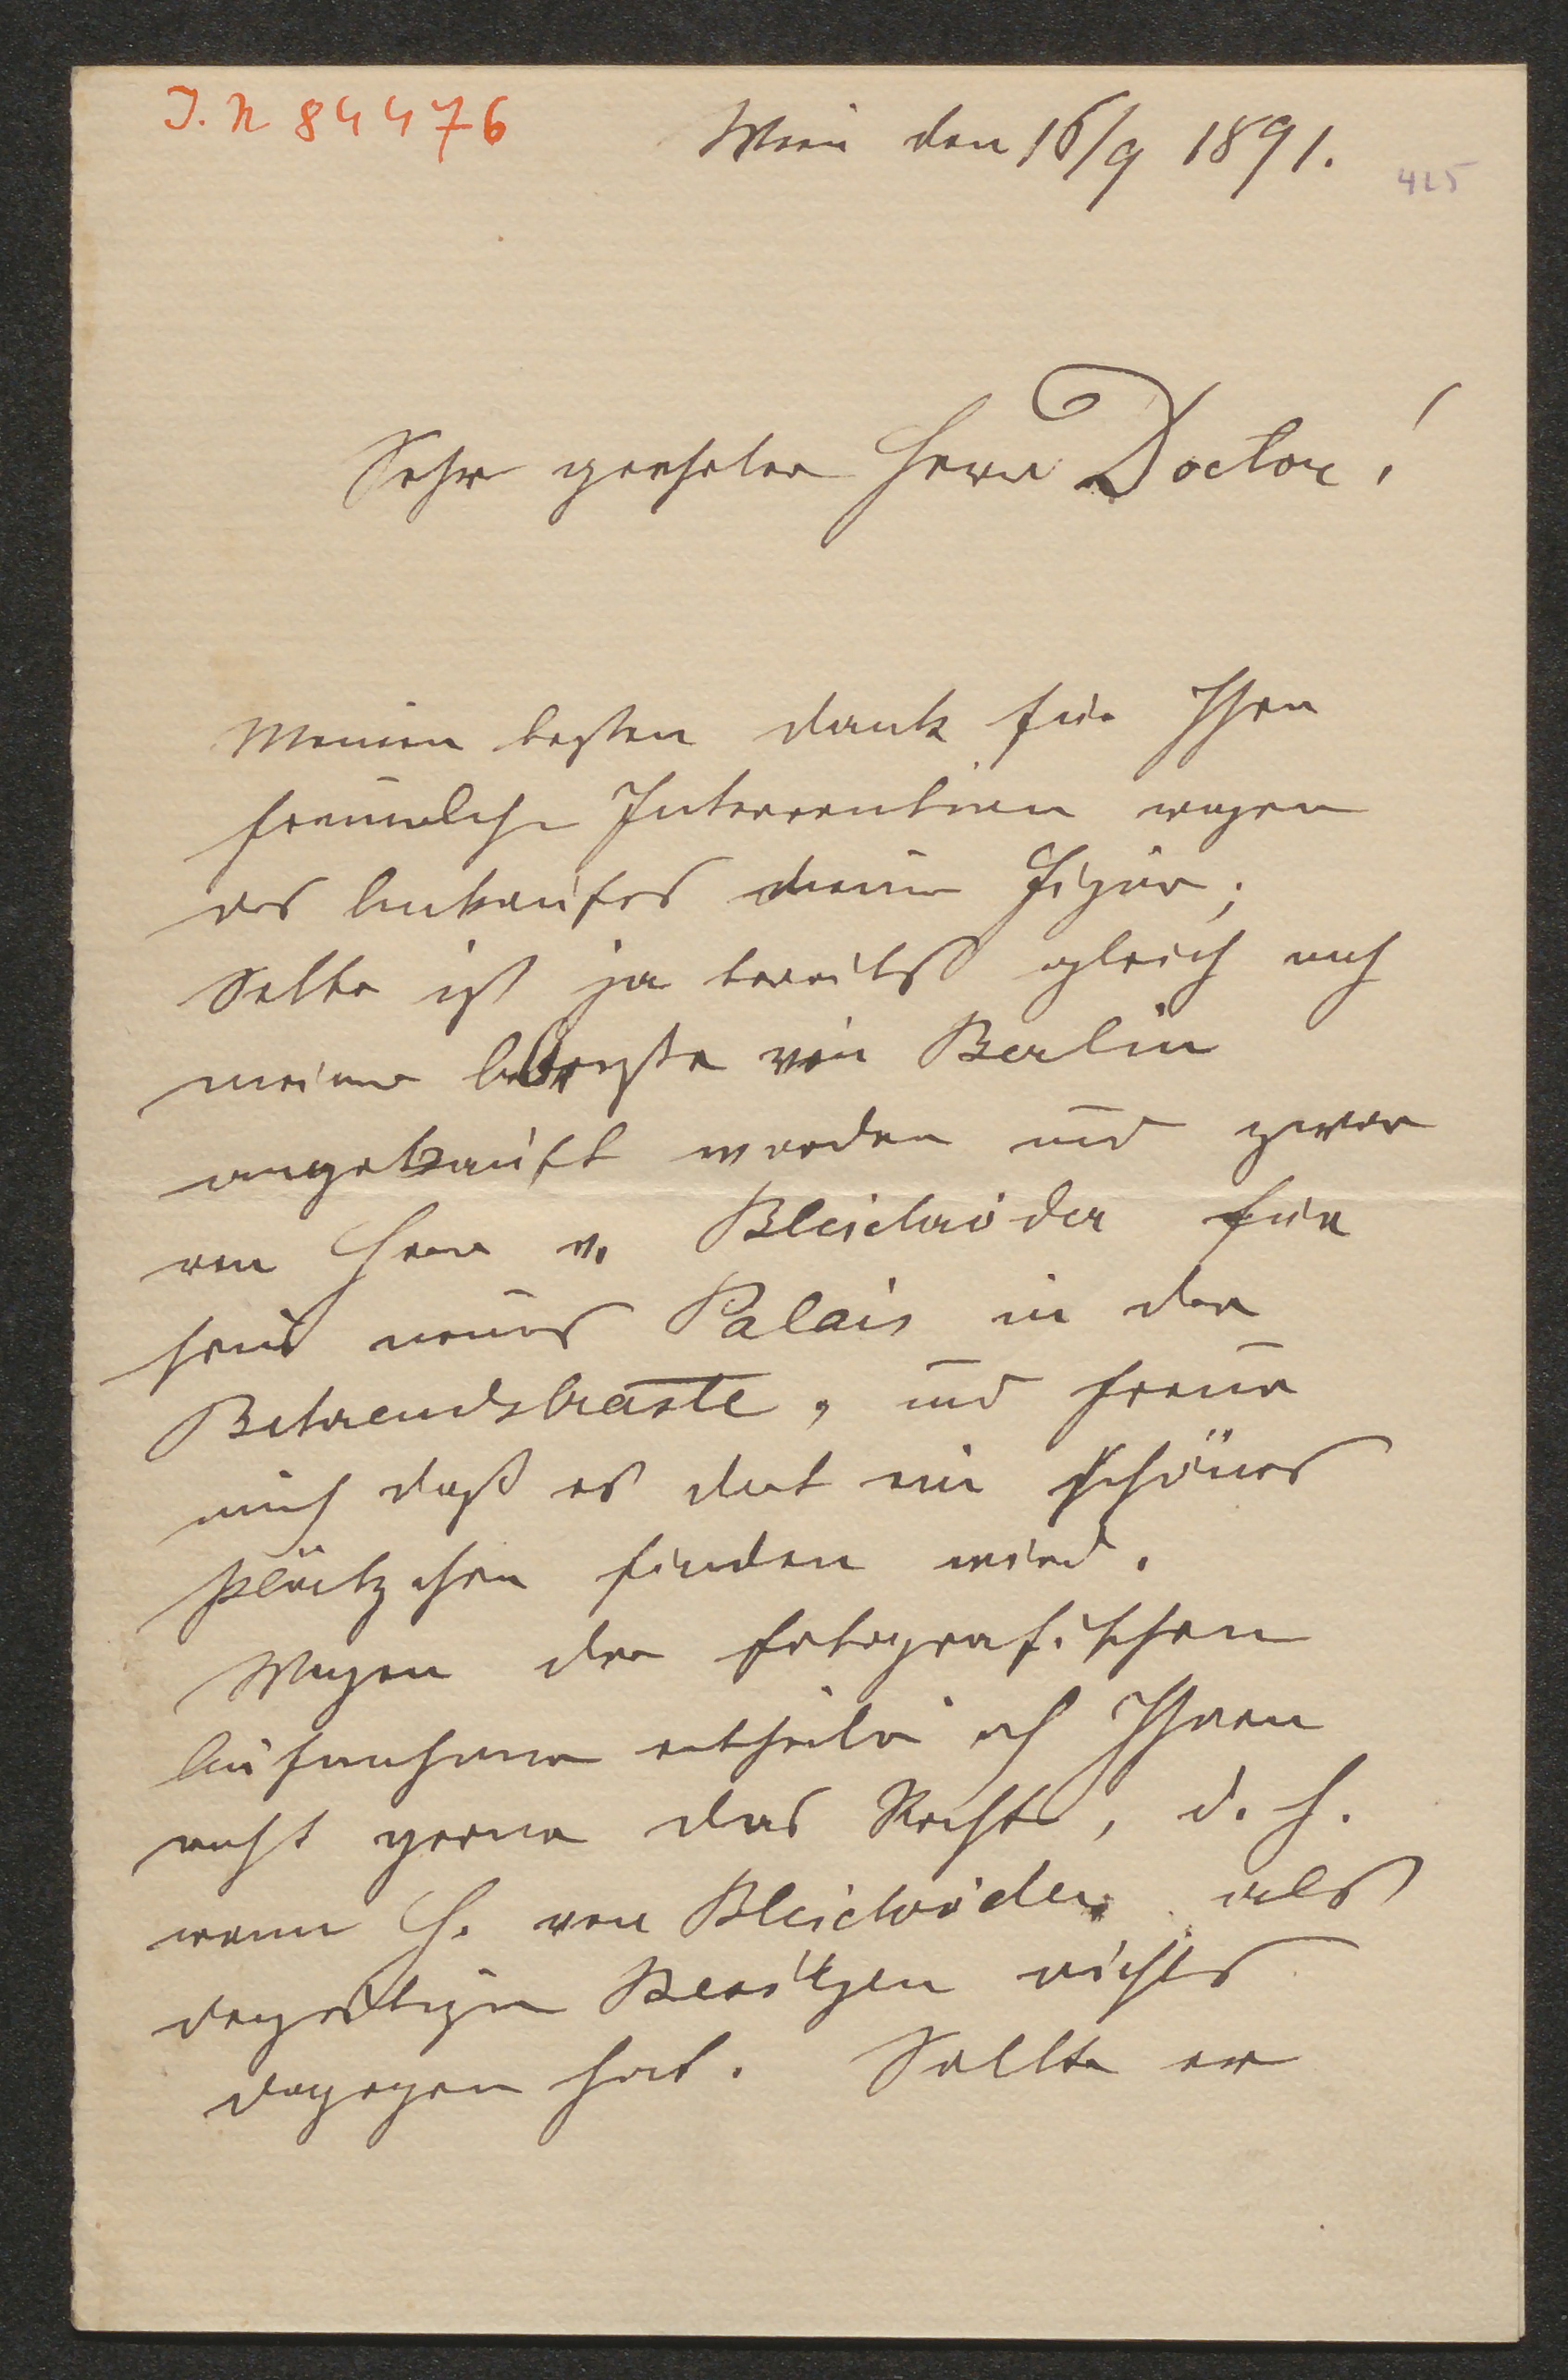 J. N 84476
Wien den 16/9 1891.
425
Sehr geehrter Herr Doctor!
Meinen besten Dank für Ihre
freundliche Intervention wegen
des Ankaufes meiner Figur;
Selbe ist ja bereits gleich nach
meiner Abreise von Berlin
angekauft worden und zwar
von Herrn v. Bleichröder für
sein neues Palais in der
Behrendstraße, und freue
mich daß es dort ein schönes
Plätzchen finden wird.
Wegen der fotografischen
Aufnahme ertheile ich Ihnen
recht gerne das Recht, d. h.
wenn H. von Bleichröder als
Besitzer nichts
dagegen hat. Sollte er